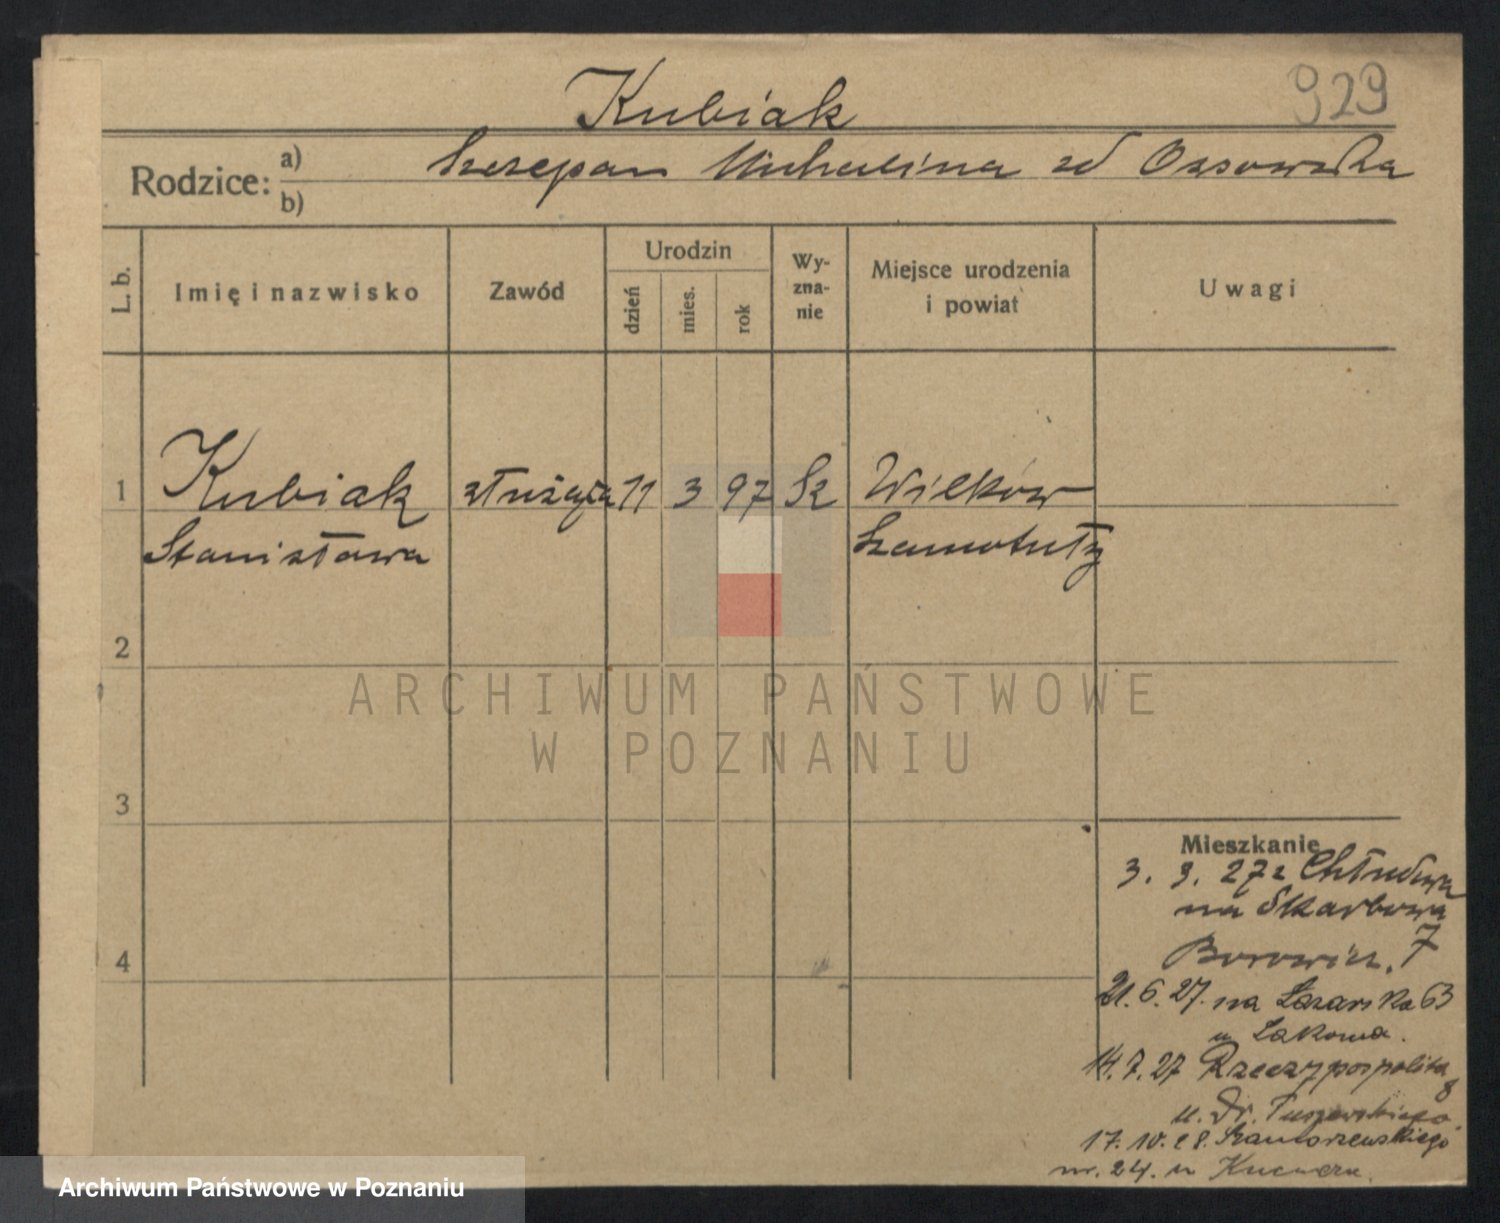 Kubiak
929
Rodzice:
a)
b)
Szczepan Michalina zd Ossowska
L. b.
Imię i nazwisko
Zawód
Urodzin
dzień
mies.
rok
Wy-
zna-
nie
Miejsce urodzenia
i powiat
Uwagi
1
Kubiak
Stanisława
służąca
11
3
97
Wilków
Szamotuły
2
ARCHIWUM PAŃSTWOWE
W POZNANIU
3
4
Mieszkanie
3. 3. 27 z Chłudowa
na Skarbowa
7
21.6.27. na Łazarska 63
u Łakoma.
14.7.27 Rzeczypospolita
8
u. Dr.
17.10.28. Szamarzewskiego
nr. 24. u
Archiwum Państwowe w Poznaniu